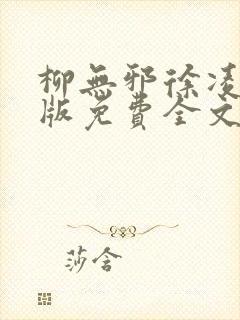 柳無邪徐凌
版免費全文
莎含